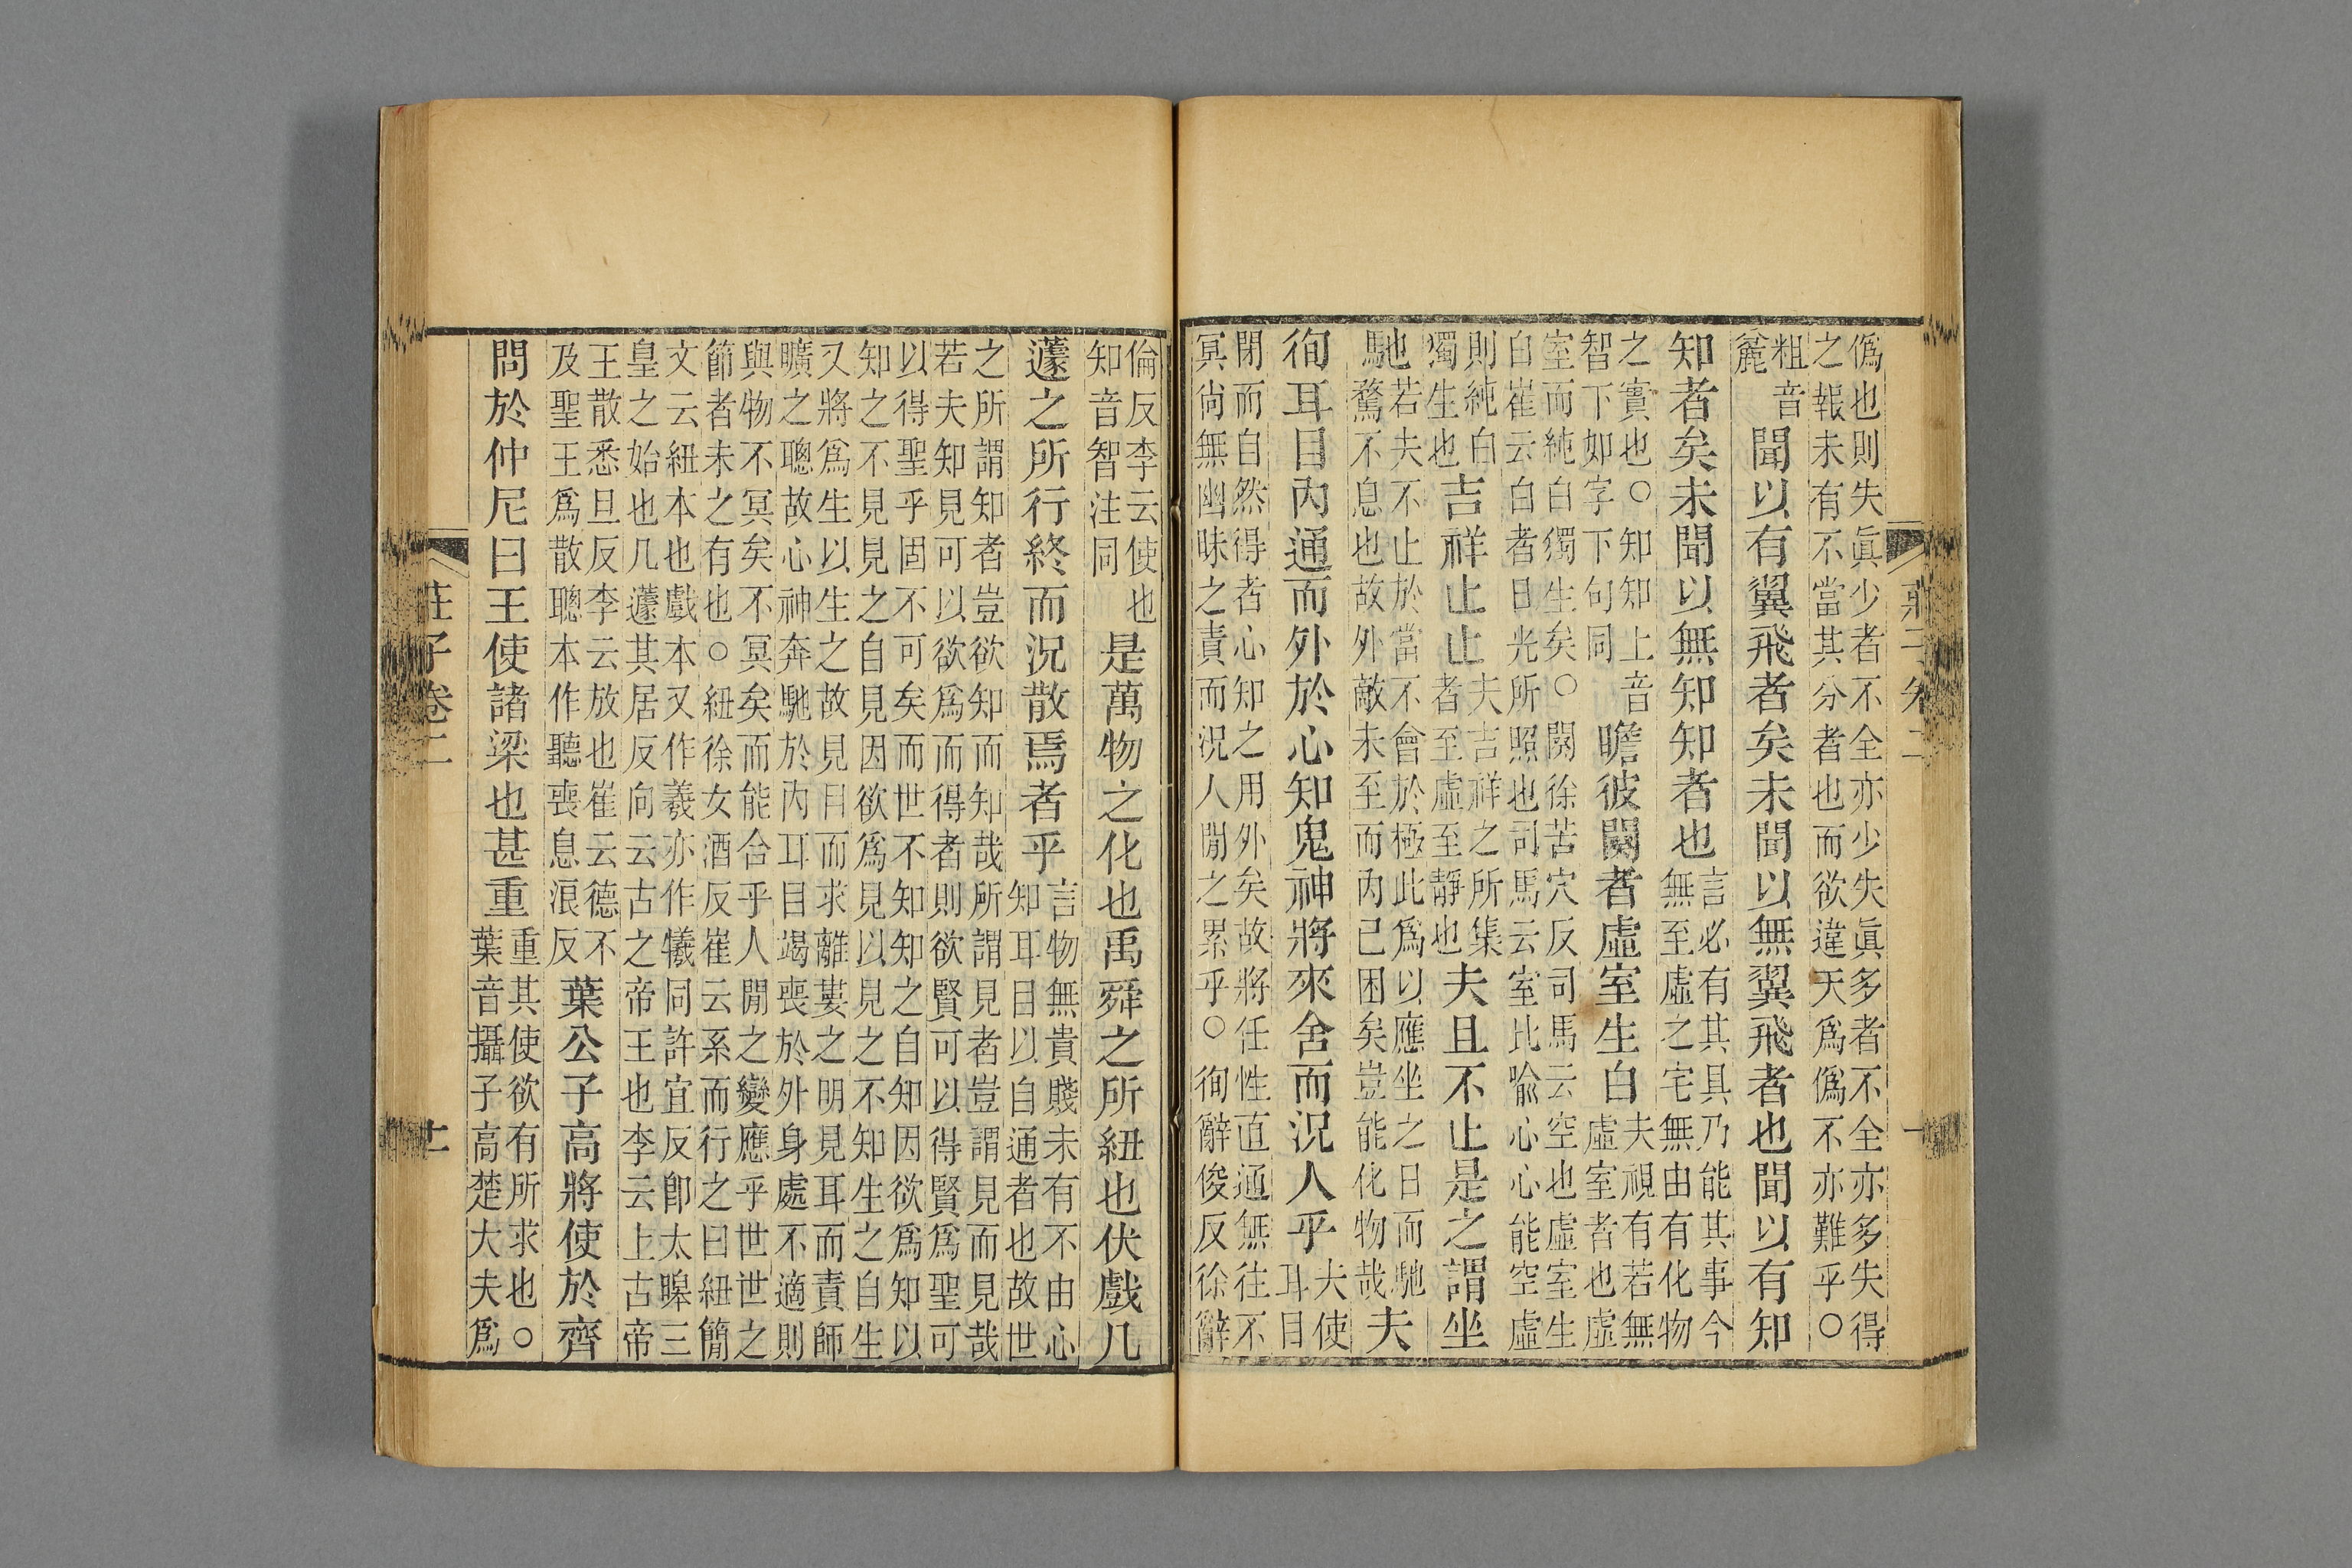 僞也則失眞少者不全亦少失眞多者不全亦多失得
之報未有不當其分者也而欲違天爲僞不亦難乎○
粗音
麄
聞以有翼飛者矣未聞以無翼飛者也聞以有知
知者矣未聞以無知知者也
言必有其具乃能其事今
無至虛之宅無由有化物
之實也○知知上音
智下如字下句同
瞻彼闋者虛室生白
夫視有若無
虛室者也虛
室而純白獨生矣○闋徐苦穴反司馬云空也虛室生
白崔云白者日光所照也司馬云室比喻心心能空虛
則純白
獨生也
吉祥止止
夫吉祥之所集
者至虛至靜也
夫且不止是之謂坐
馳
若夫不止於當不會於極此爲以應坐之日而馳
騖不息也故外敵未至而內已困矣豈能化物哉
夫
徇耳目內通而外於心知鬼神將來舍而況人乎
夫使
耳目
閉而自然得者心知之用外矣故將任性直通無往不
冥尚無幽昧之責而況人閒之累乎○徇辭俊反徐辭
倫反李云使也
知音智注同
是萬物之化也禹舜之所紐也伏戲几
蘧之所行終而況散焉者乎
言物無貴賤未有不由心
知耳目以自通者也故世
之所謂知者豈欲知而知哉所謂見者豈謂見而見哉
若夫知見可以欲爲而得者則欲賢可以得賢爲聖可
以得聖乎固不可矣而世不知知之自知因欲爲知以
知之不見見之自見因欲爲見以見之不知生之自生
又將爲生以生之故見目而求離婁之明見耳而責師
曠之聰故心神奔馳於內耳目竭喪於外身處不適則
與物不冥矣不冥矣而能合乎人閒之變應乎世世之
節者未之有也○紐徐女酒反崔云系而行之曰紐簡
文云紐本也戲本又作羲亦作犧同許宜反卽太皞三
皇之始也几蘧其居反向云古之帝王也李云上古帝
王散悉旦反李云放也崔云德不
及聖王爲散聰本作聽喪息浪反
葉公子高將使於齊
問於仲尼曰王使諸梁也甚重
重其使欲有所求也○
葉音攝子高楚大夫爲
莊子卷二